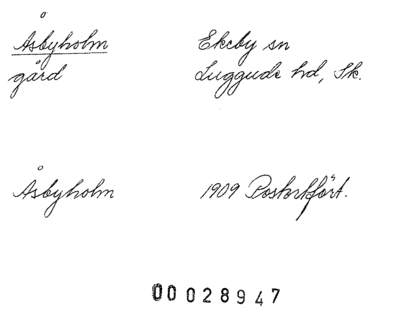 Åsbyholm Ekeby sn
gård Luggude hd, Sk.
Åsbyholm 1909 Postortsfört.
00028947